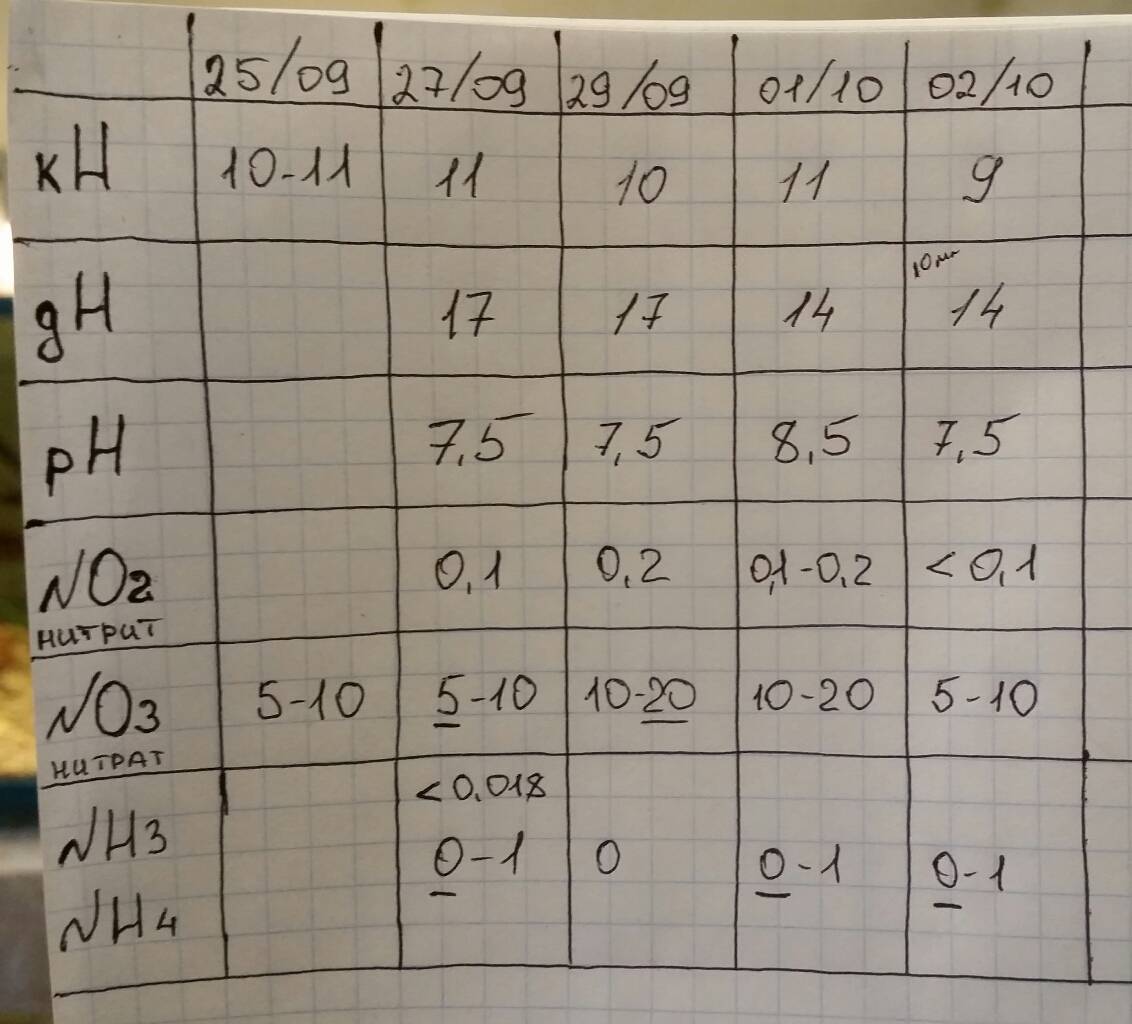 25/09 27/09 29/09 01/10 02/10
кН 10-11 11 10 11 9
10мл
gH 17 17 14 14
pH 7,5 7,5 8,5 7,5
NO2 0,1 0,2 0,1-0,2 <0,1
НИТРИТ
NO3 5-10 5-10 10-20 10-20 5-10
НИТРАТ
<0,018
NH3 0-1 0 0-1 0-1
NH4